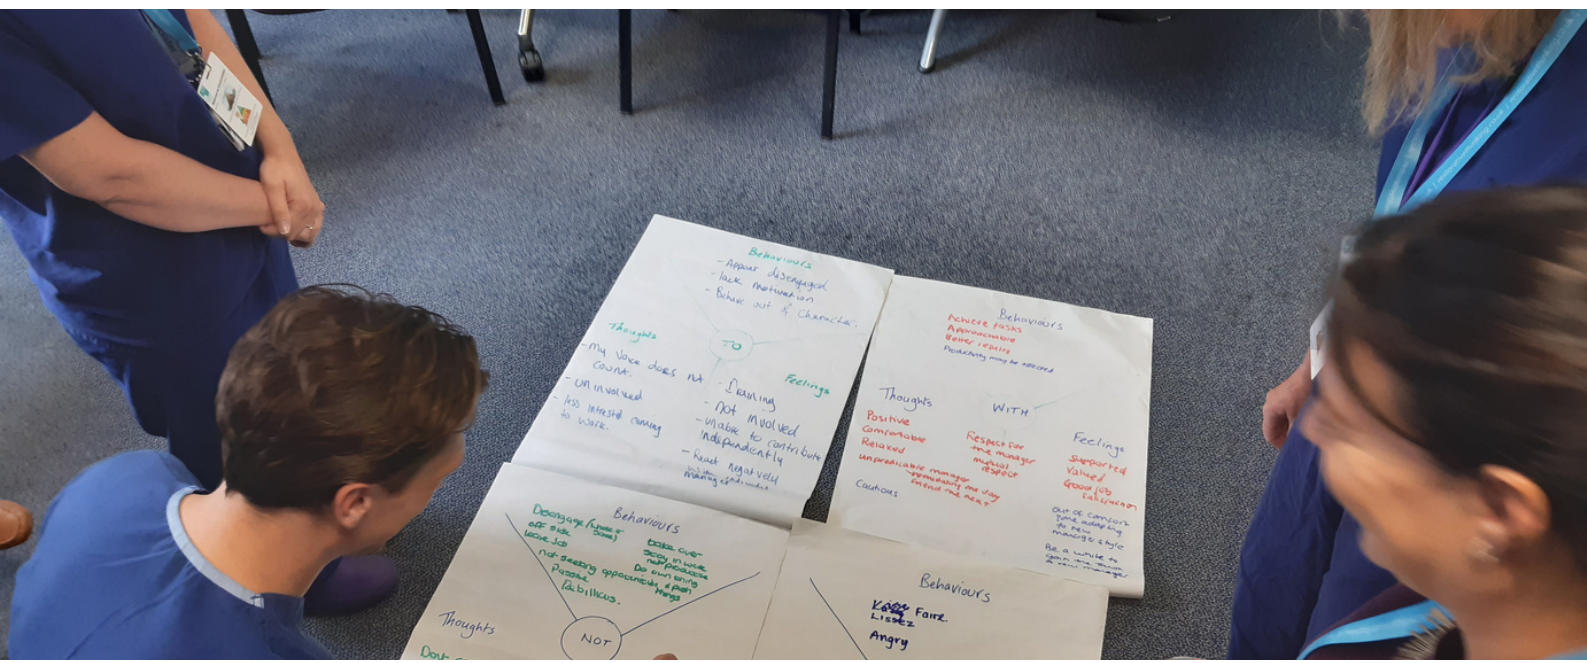 Behaviours
- Appear disengaged
- lack motivation
- Behave out of Character.
TO
Thoughts
- My Voice does not
count.
- uninvolved
- less intrested coming
to work.
Feelings
- Draining
- Not involved
- unable to contribute
independently
- React negatively
Behaviours
Achieve tasks
Approachable
Better results
Productivity may be
WITH
Thoughts
Positive
Comfortable
Relaxed
manager
one day
friend the next
Cautious
Respect for
the manager
mutual
respect
Feelings
Supported
Valued
Good job
satisfaction
out of comfort
zone adapting
to new
manager style
Be a while to
gain the
a new manager
Behaviours
Disengage
off sick
leave Job
not seeking opportunities
Passive
take over
stay in work
not productive
Do own thing
things
NOT
Thoughts
Behaviours
Faire
Lissez
Angry